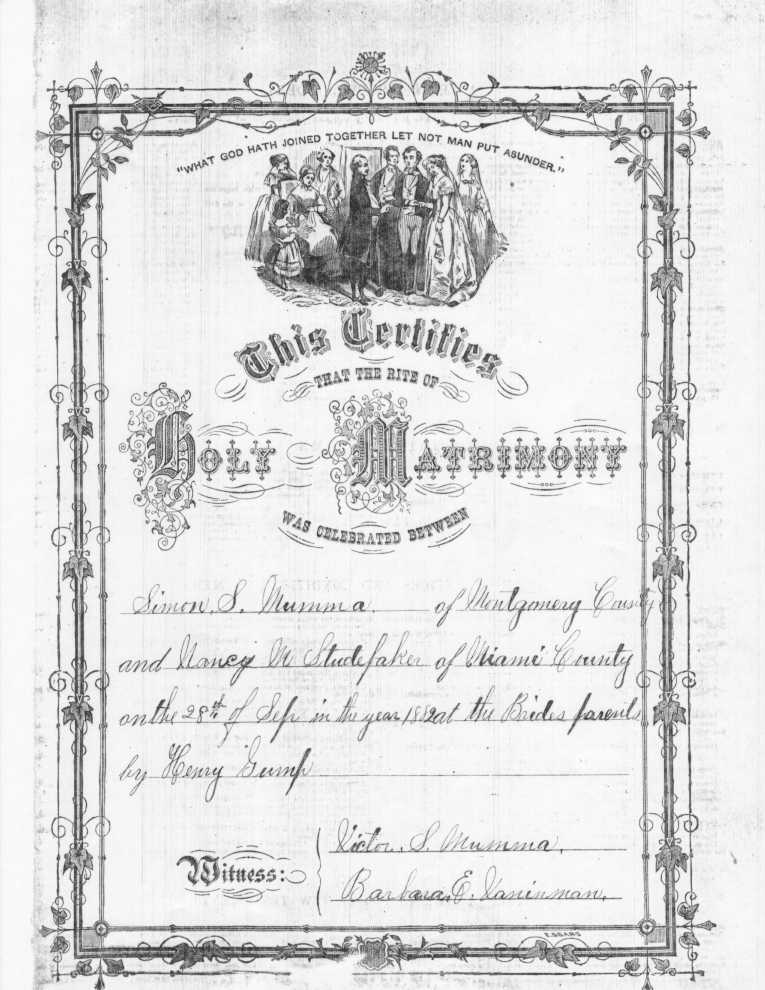 "WHAT GOD HATH JOINED TOGETHER LET NOT MAN PUT ASUNDER."
This Certifies
THAT THE RITE OF
HOLY MATRIMONY
WAS CELEBRATED BETWEEN
Simon. S. Mumma of Montgomery County
and Nancy M Studefaker of Miami County
on the 28th of Sep in the year at the Brides parents
by Henry Gump
Victor. S. Mumma.
Witness:
Barbara. E.
E.SEARS